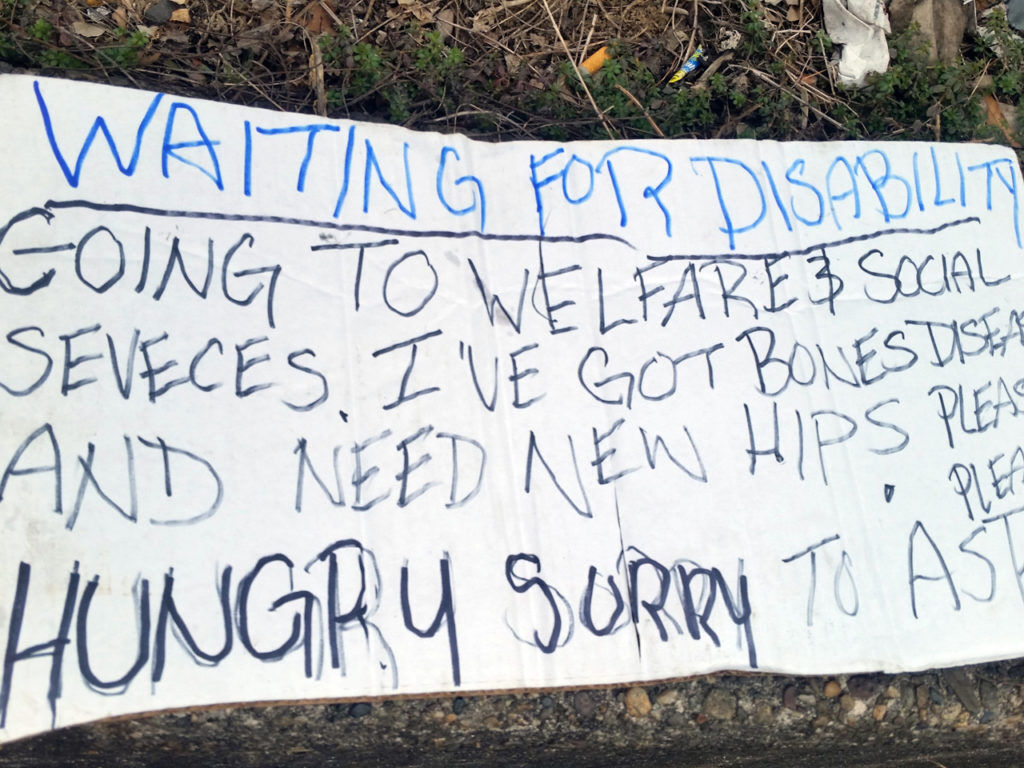 WAITING FOR DISABILITY
GOING TO WELFARE & SOCIAL
SEVECES. I'VE GOT BONES DISEA
AND NEED NEW HIPS. PLEAS
PLEA
HUNGRY SORRY TO AST